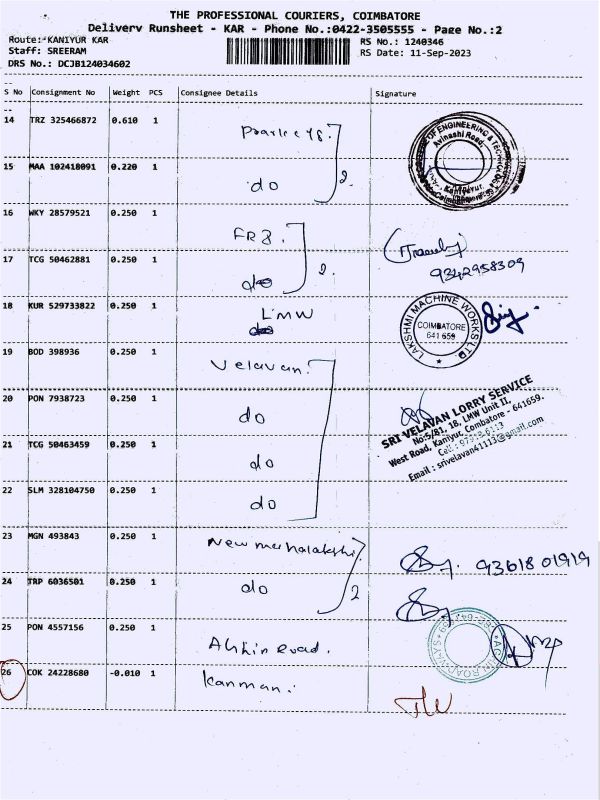 THE PROFESSIONAL COURIERS, COIMBATORE
Delivery Runsheet - KAR - Phone No.:0422-3505555 - Page No.:2
Route: KANIYUR KAR
RS No.: 1240346
Staff: SREERAM
RS Date: 11-Sep-2023
DRS No.: DCJB124034602
S No Consignment No Weight PCS Consignee Details Signature
14 TRZ 325466872 0.610 1
OF ENGINEERING &
Avinashi Road,
Kaniyur,
15 MAA 102418091 0.220 1 do 2.
16 WKY 28579521 0.250 1 FRB.
17 TCG 50462881 0.250 1 do 2.
9342958309
18 KUR 529733822 0.250 1 LMW
do
LAKSHMI MACHINE WORKS LTD
COIMBATORE
641 659
19 BOD 398936 0.250 1 Velavan.
20 PON 7938723 0.250 1 do
SRI VELAVAN LORRY SERVICE
No:5/81, 18, LMW Unit II,
West Road, Kaniyur, Coimbatore - 641659.
Cell :
Email : srivelavan41113@gmail.com
21 TCG 50463459 0.250 1 do
22 SLM 328104750 0.250 1 do
23 MGN 493843 0.250 1 New mahalakshi
93618 01919
24 TRP 6036501 0.250 1 do 2
25 PON 4557156 0.250 1 Road.
26 COK 24228680 -0.010 1 Kanmani.